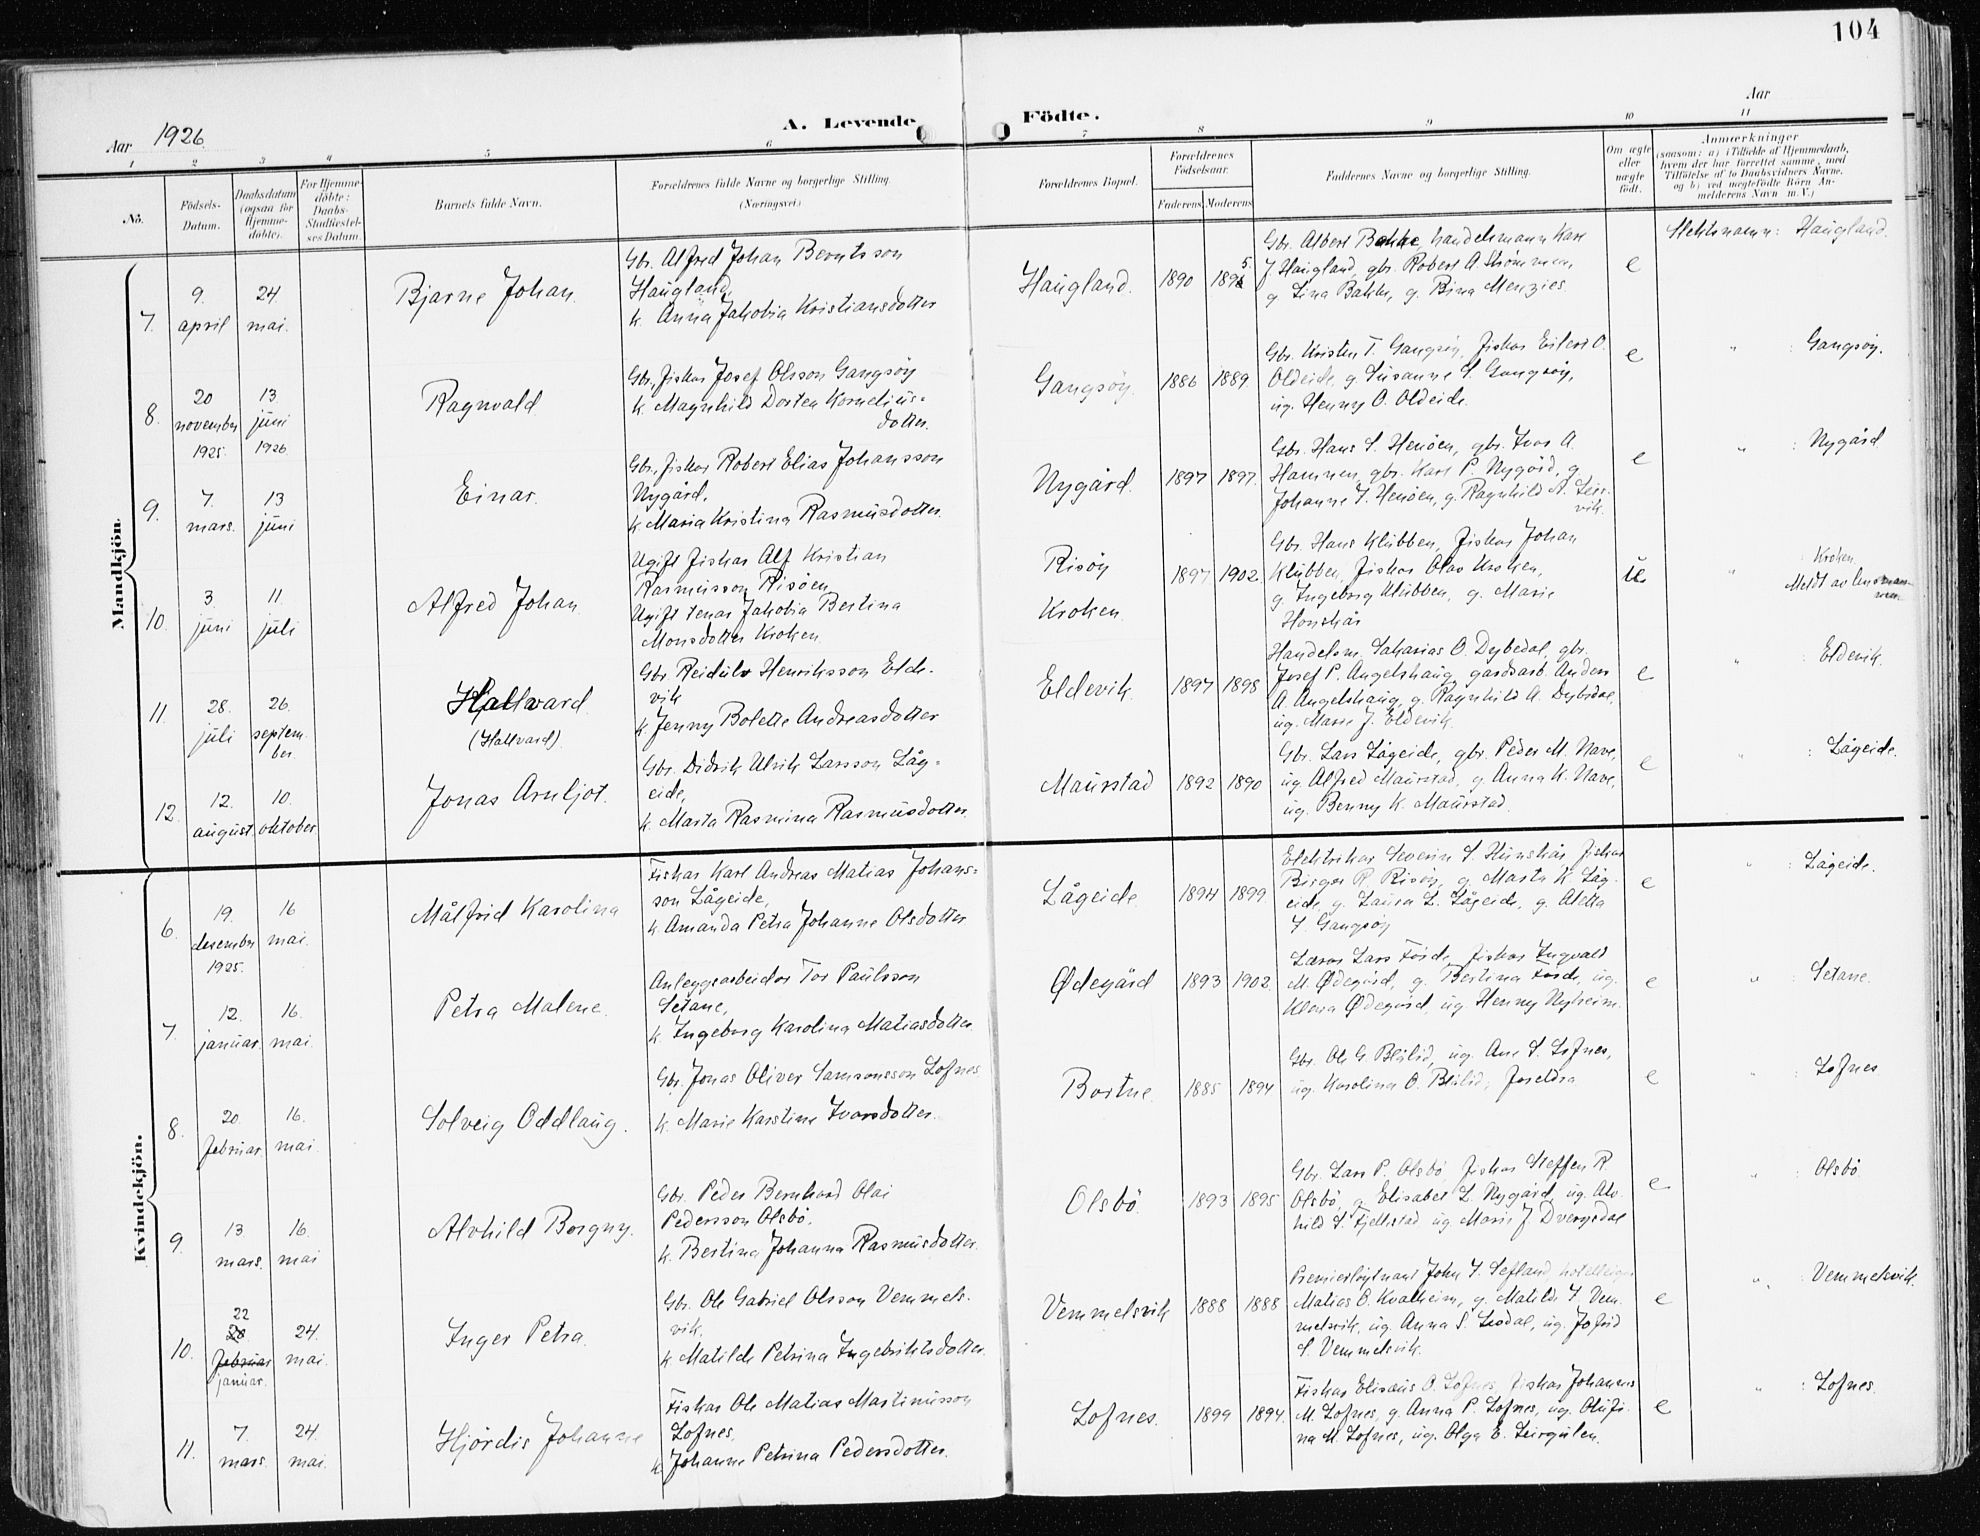 104
Aar 1926
A. Levende Födte.
Aar
1 2 3 4 5 6 7 8 9 10 11
No.
Födsels-Datum.
Daabsdatum (ogsaa for Hjemme-döbte).
For Hjemme-döbte: Daabs-Stadfæstel-ses Datum.
Barnets fulde Navn.
Forældrenes fulde Navne og borgerlige Stilling
(Næringsvei)
Forældrenes Bopæl.
Forældrenes Födselsaar.
Faderens Moderens
Faddernes Navne og borgerlige Stilling.
Om ægte eller uægte födt.
Anmærkninger
(saasom: a) i Tilfælde af Hjemmedaab, hvem der har forrettet samme, med Tilföielse af to Daabsvidners Navne, og b) ved uægtefödte Börn An-melderens Navn m.V.)
Mandkjön.
7. 9. april 24 mai.
Bjarne Johan.
Gbr. Alfred Johan Berntsson
Haugland,
k. Anna Jakobia Kristiansdotter
Haugland. 1890 1895
Gbr. Albert Bakke, handelsmann Kare
J. Haugland, gbr. Robert A. Strömmen,
g. Lina Bakke, g. Bina Menzies.
e
Slektsnamn: Haugland.
8. 20 november 1925. 13 juni 1926
Ragnvald
Gbr., fiskar Josef Olsson Gangsöy
k. Magnhild Dorten Kornelius-
dotter.
Gangsöy. 1886 1889.
Gbr. Kristen T. Gangsöy, fiskar Eilert O.
Oldeide, g. Susanne S. Gangsöy,
ug. Henny O. Oldeide.
e
" : Gangsöy.
9. 7. mars. 13 juni
Einar.
Gbr., fiskar Robert Elias Johansson
Nygård,
k. Maria Kristina Rasmusdotter.
Nygård. 1897 1897.
Gbr. Hans S. Henöen, gbr. Ivar A.
Hamnen, gbr. Kare P. Nygård, g.
Johanne J. Henöen, g. Ragnhild A. Leir-
vik.
e
" : Nygård
10. 3 juni 11. juli
Alfred Johan
Ugift fiskar Alf Kristian
Rasmusson Risöen
Ugift tenar Jakobia Bertina
Monsdotter Kroken.
Risöy
Kroken.
1897 1902.
Gbr. Hans Klubben, fiskar Johan
Klubben, fiskar Olav Kroken,
g. Ingeborg Klubben, g. Marie
Honskår
u
" : Kroken
Meldt av lensmannen
11. 28. juli 26. september.
Hallvard.
(Hallvard).
Gbr. Reidulv Henriksson Elde-
vik
k. Jenny Bolette Andreasdotter
Eldevik. 1897 1898
Handelsm. Sakarias O. Dybedal, gbr.
Josef P. Angelshaug, gardsarb. Anders
A. Angelshaug, g. Ragnhild A. Dybedal,
ug. Marie J. Eldevik.
e
" : Eldevik.
12. 12. august. 10. oktober.
Jonas Arnljot.
Gbr. Didrik Ulrik Larsson Låg-
eide,
k. Marta Rasmina Rasmusdotter.
Maurstad 1892 1890
Gbr. Lars Lågeide, gbr. Peder M. Nave,
ug. Alfred Maurstad, g. Anna K. Nave,
ug. Benny K. Maurstad.
e
" : Lågeide.
Kvindekjön.
6. 19. desember 1925. 16 mai.
Målfrid Karolina
Fiskar Karl Andreas Matias Johans-
son Lågeide,
k. Amanda Petra Johanne Olsdotter
Lågeide. 1894 1899.
Elektrikar Severin S. Hunskår, fiskar
Birger R. Risöy, g. Marta K. Låg-
eide, g. Laura L. Lågeide, g. Aletta
J. Gangsöy
e
" : Lågeide.
7. 12. januar. 16. mai.
Petra Malene.
Anleggsarbeidar Tor Paulsson
Setane,
k. Ingeborg Karolina Matiasdotter.
Ødegård 1893 1902.
Lærar Lars Förde, fiskar Ingvald
M. Ødegård, g. Bertina Förde, ug.
Klara Ødegård, ug. Henny Nyheim.
e
" : Setane.
8. 20. februar 16. mai.
Solveig Oddlaug.
Gbr. Jonas Oliver Samsonsson Lofnes
k. Marie Karstine Ivarsdotter.
Bortne. 1885 1894
Gbr. Ole G. Blålid, ug. Ane S. Lofnes,
ug. Karolina O. Blålid, foreldra
e
" : Lofnes
9. 13 mars. 16. mai
Alvhild Borgny.
Gbr. Peder Bernhard Olai
Pedersson Olsbö.
k. Bertina Johanna Rasmusdotter.
Olsbö. 1893 1895
Gbr. Lars P. Olsbö, fiskar Steffen R.
Olsbö, g. Elisabet L. Nygård, ug. Alv-
hild S. Fjellestad, ug. Marie J. Dvergsdal
e
" : Olsbö
10. 22 20. februar januar. 24. mai.
Inger Petra.
Gbr. Ole Gabriel Olsson Vemmels-
vik.
k. Matilde Petrina Ingebriktsdotter.
Vemmelsvik 1888 1888
Premierlöytnant John J. Sefland, hotelleigar
Matias O. Kvalheim, g. Matilde J. Vem-
melsvik, ug. Anna S. Lesdal, ug. Jofrid
S. Vemmelsvik.
e
" : Vemmelsvik.
11. 7. mars. 24. mai.
Hjördis Johanne
Fiskar Ole Matias Martinusson
Lofnes.
k. Johanne Petrina Pedersdotter.
Lofnes. 1899 1894.
Fiskar Elisæus O. Lofnes, fiskar Johannes
M. Lofnes, g. Anna P. Lofnes, ug. Olufi-
na M. Lofnes, ug. Olga E. Leirgulen.
e
" : Lofnes.